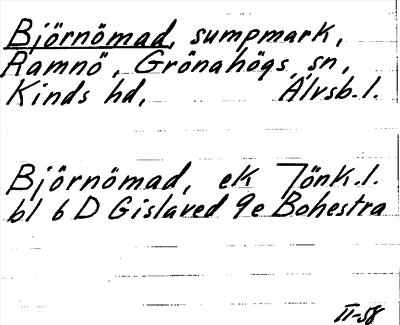 Björnömad, sumpmark,
Ramnö, Grönahögs sn,
Kinds hd, Älvsb. l.
Björnömad, ek Jönk. l.
bl 6 D Gislaved 9e Bohestra
II-58